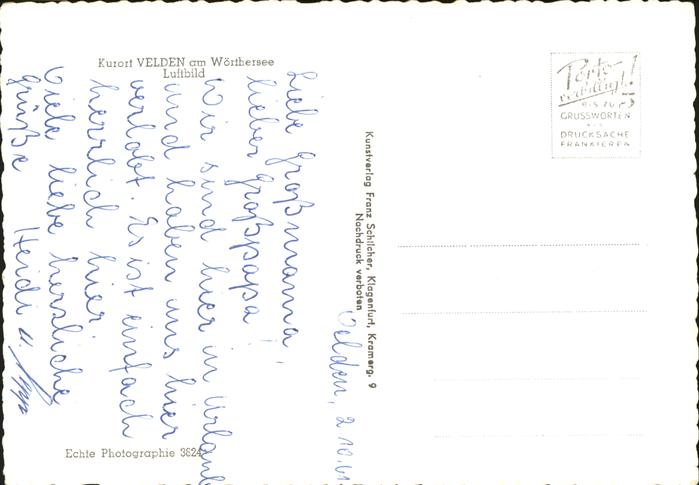 Kurort VELDEN am Wörthersee
Luftbild
Velden, 2.10.61
Liebe Großmama,
lieber Großpapa!
Wir sind hier in Urlaub
und haben uns hier
verlobt. Es ist einfach
herrlich hier.
Viele liebe herzliche
Grüße
Heidi u. Sepp
Echte Photographie 3824
Kunstverlag Franz Schilcher, Klagenfurt, Kramerg. 9
Nachdruck verboten
Porto
verbilligt!
BIS ZU 5
GRUSSWORTEN
ALS
DRUCKSACHE
FRANKIEREN